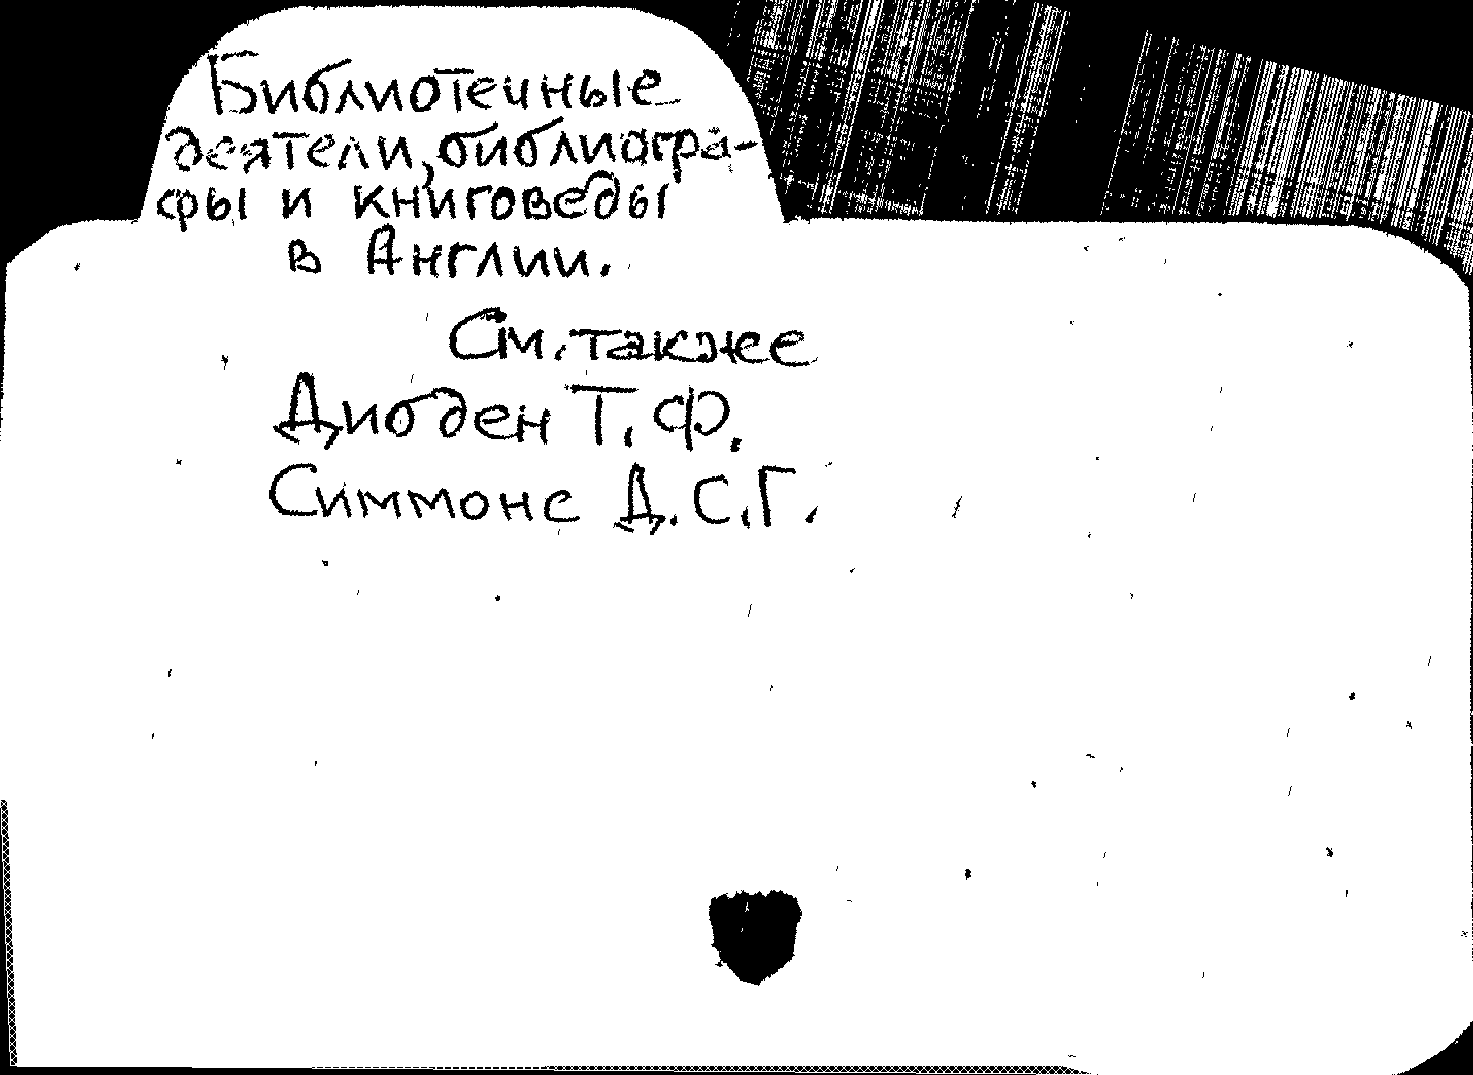 Библиотечные
деятели, библиогра-
фы и книговеды
в Англии.
См. также
Дибден Т. Ф.
Симмонс Д. С. Г.